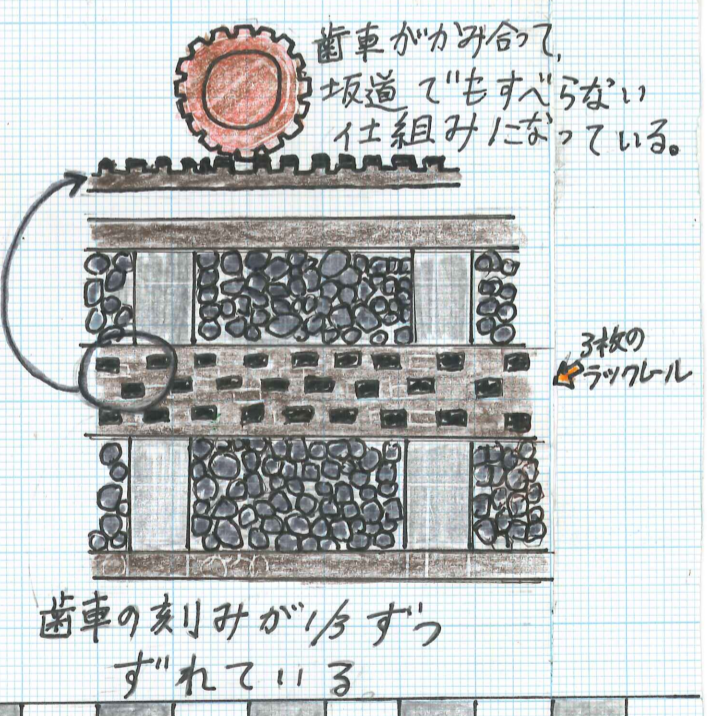 歯車がかみ合って、
坂道でもすべらない
仕組みになっている。
3枚の
ラックレール
歯車の刻みが1/3ずつ
ずれている